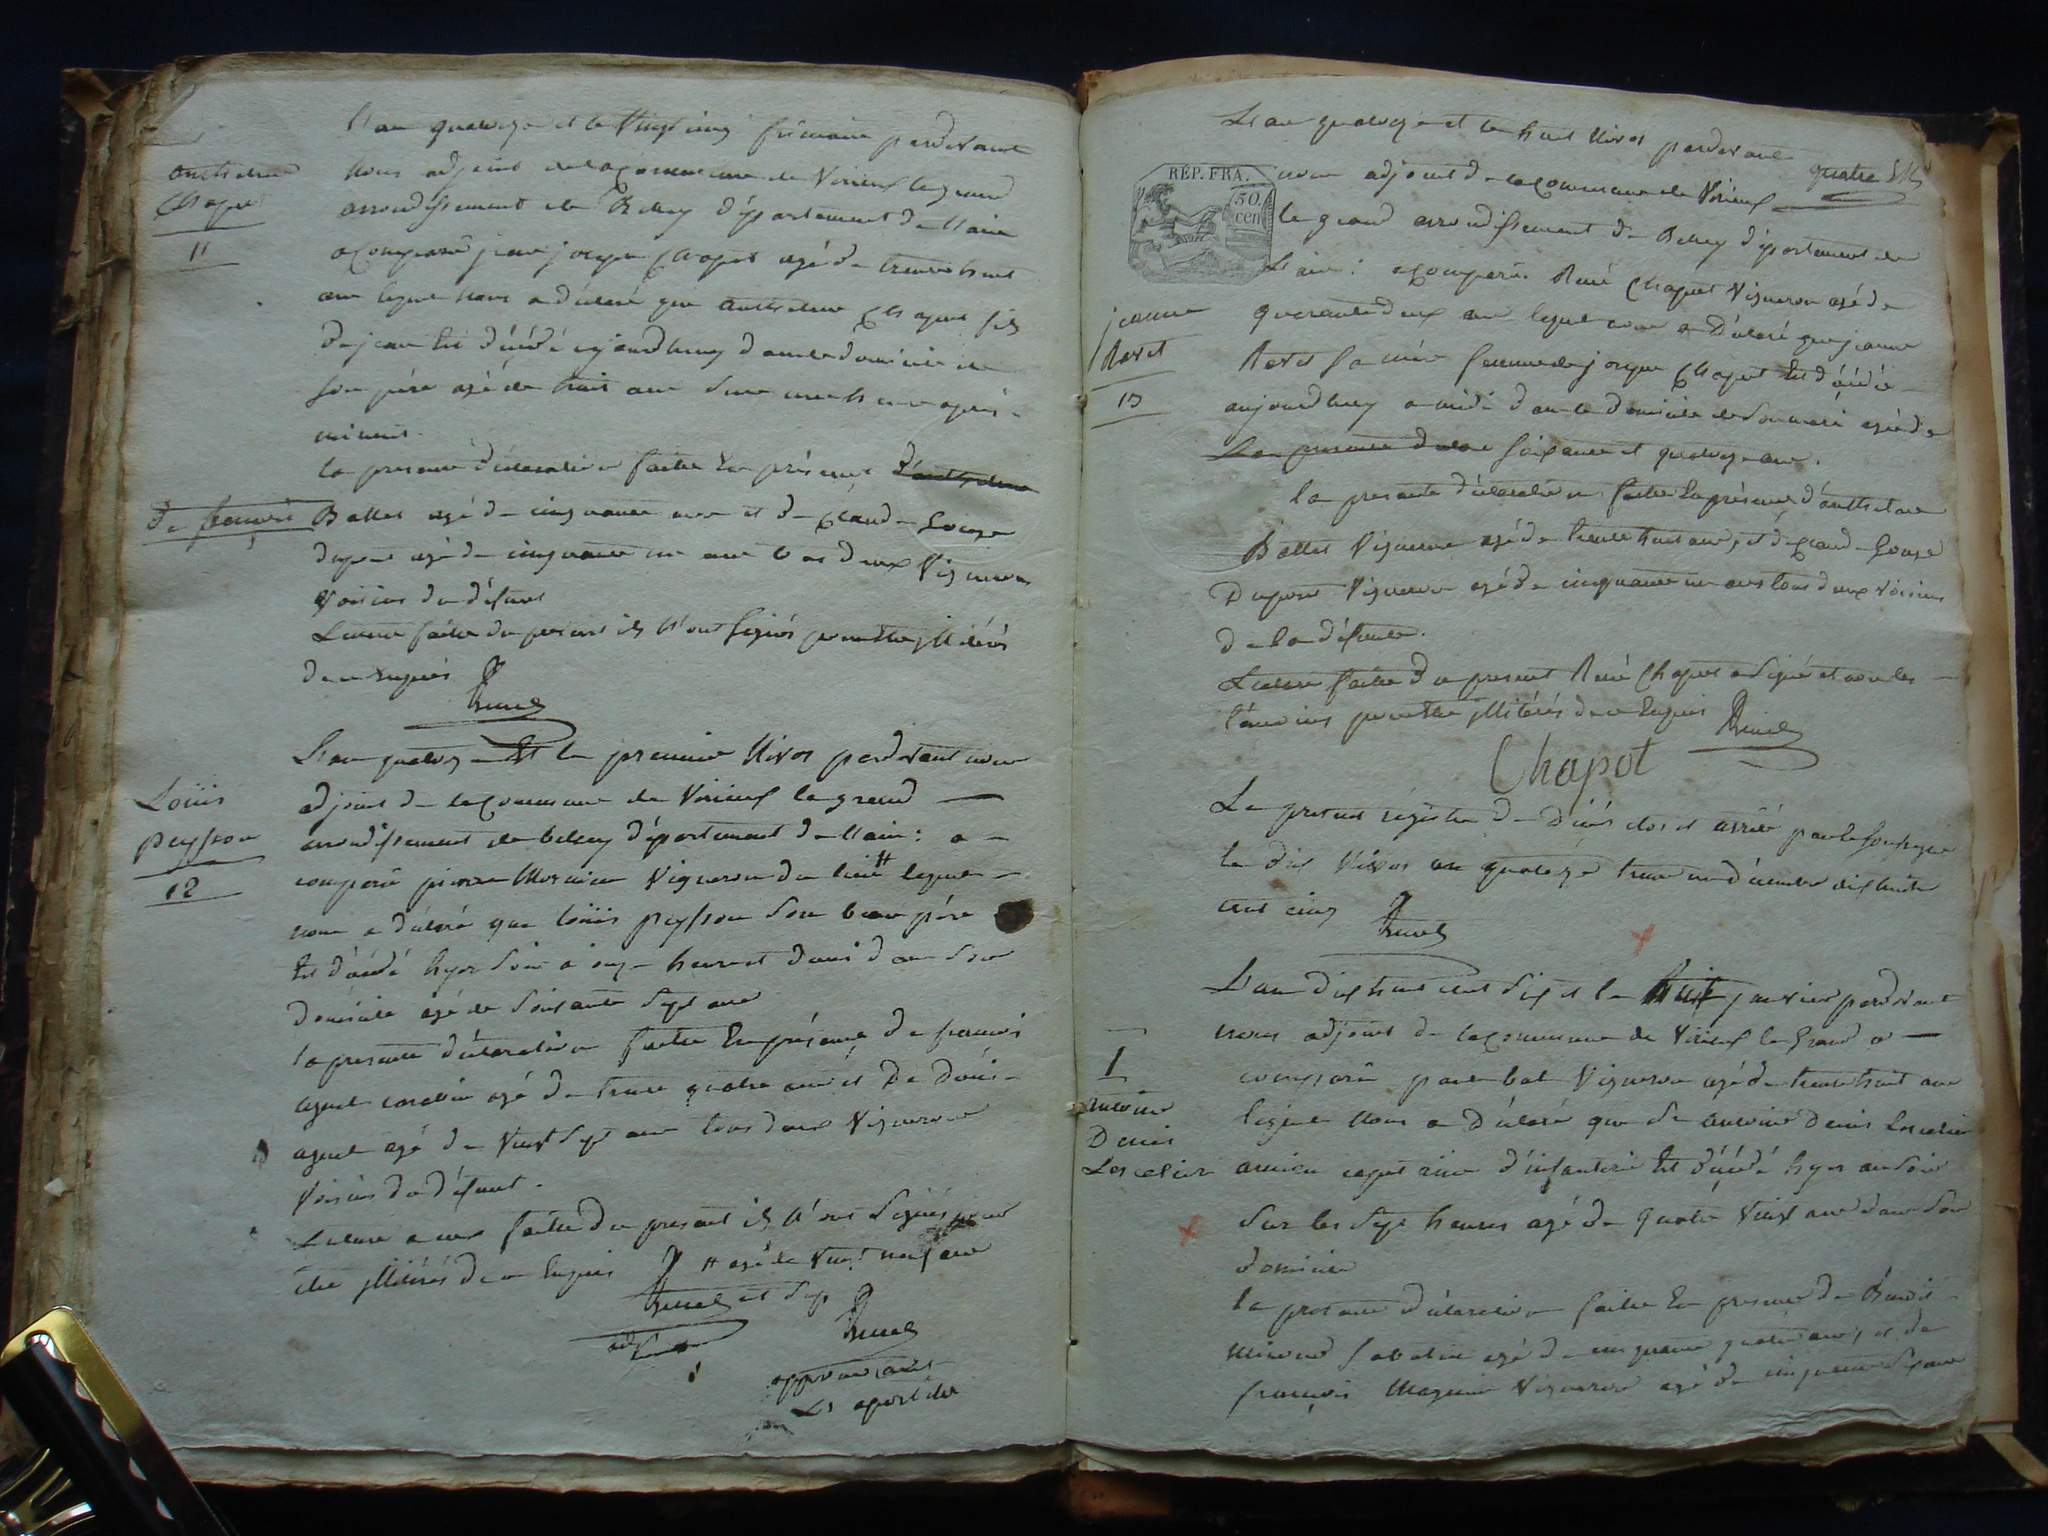 L'an quatorze et le Vingt cinq frimaire pardevant
nous adjoint de la Commune de Virieux le grand
arrondissement de Belley département de l'ain
a comparu jean joseph Chapot agé de trente huit
ans lequel nous a déclaré que anthelme Chapot fils
de jean est décédé aujourdhuy dans le domicile de
son père agé de huit ans sur une heure après
minuit.
la presente déclaration faitte En présence d'anthelme
de françois Ballet agé de cinquante ans et de Claude Louise
dupont agé de cinquante un ans tous deux Vignerons
Voisins du défunt
Lecture faitte du present ils n'ont signés pour être illitérés
de ce enquis
anthelme
Chapot
11
L'an quatorze Et le premier Nivos pardevant nous
adjoint de la Commune de Virieux le grand
arrondissement de belley département de l'ain : a
comparu pierre Vigneron du lieu # lequel
nous a déclaré que Loüis peysson son beau père
Est décédé hyer soir a onze heures et demi dans son
domicile agé de soixante sept ans
la presente déclaration faitte En présence de françois
agé de trente quatre ans et De Denis
agé de Vingt sept ans tous deux Vignerons
Voisins du défunt.
Lecture a eux faitte du present ils n'ont signés pour
être illitérés de ce Enquis
# agé de Vingt neuf ans
et sept
approuvant
Les apostiles
Loüis
peysson
12
quatre
RÉP. FRA.
50.
cen
L'an quatorze et le huit Nivos pardevant
nous adjoint de la Commune de Virieux
le grand arrondissement de Belley département de
L'ain : a comparu René Chapot Vigneron agé de
quarante deux ans lequel nous a Déclaré que jeanne
Ravet sa mère femme de joseph Chapot Est décédé
aujourdhuy a midi dans le domicile de son mari agé de
La presente declara soixante et quatorze ans.
la presente déclaration faitte En présence d'anthelme
Ballet Vigneron agé de trente huit ans, et de Claude Louise
Dupont Vigneron agé de cinquante un ans tous deux Voisins
de la défunte.
Lecture faitte du present René Chapot a signé et non les
témoins pour être illitérés de ce Enquis
Chapot
jeanne
Ravet
13
Le present régistre de décés clos et arrêté par le soussigné
le dix Nivos an quatorze trente un décembre dix huit
cent cinq
L'an dix huit cent six et le huit janvier pardevant
nous adjoint de la Commune de Virieux le Grand a
comparu Vigneron agé de trente huit ans
lequel nous a Déclaré que Sr antoine Denis Lescelier
ancien capitaine d'infanterie Est décédé hyer au soir
sur les sept heures agé de quatre Vingt ans dans son
domicile
la presente déclaration faitte En presence de Benoit
agé de cinquante quatre ans, et de
françois Vigneron agé de cinquante six ans
1
antoine
Denis
Lescelier